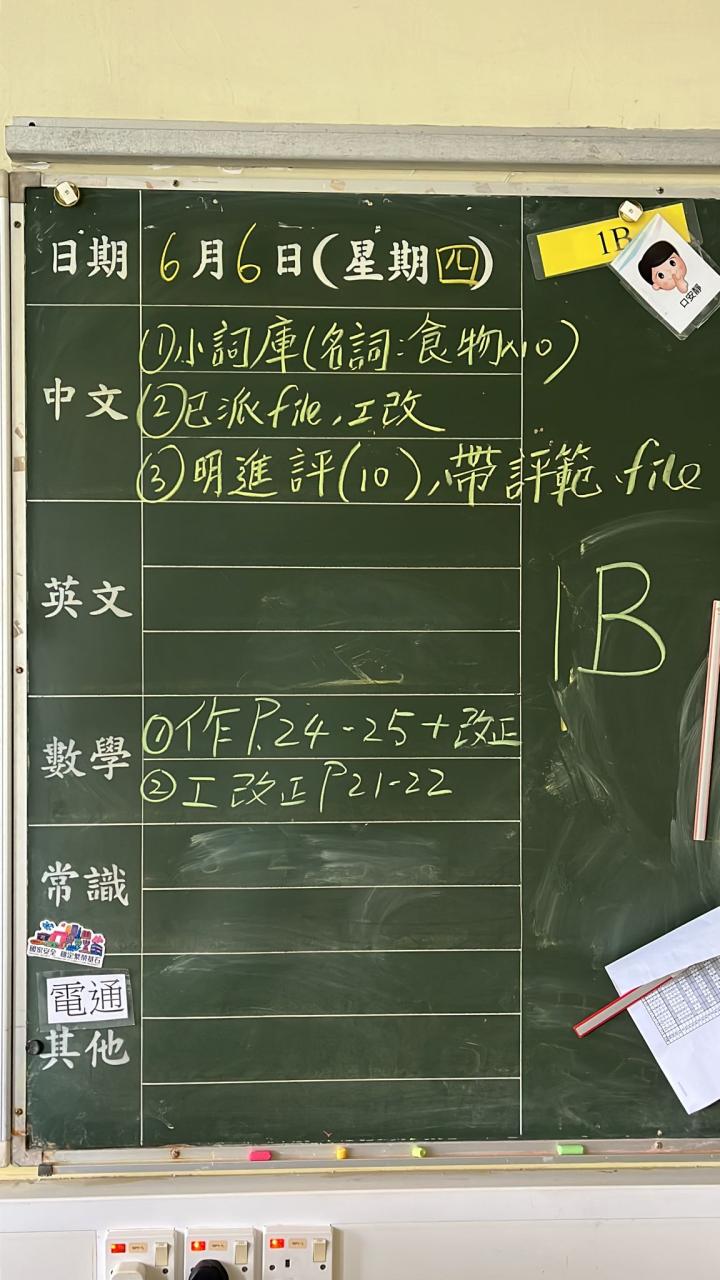 日期 6月6日(星期四)
1B
口安靜
中文
①小詞庫(名詞:食物x10)
②已派file,工改
③明進評(10),帶評範、file
英文
1B
數學
①作P.24-25+改正
②工改正P21-22
常識
國家安全 穩定繁榮基石
電通
其他